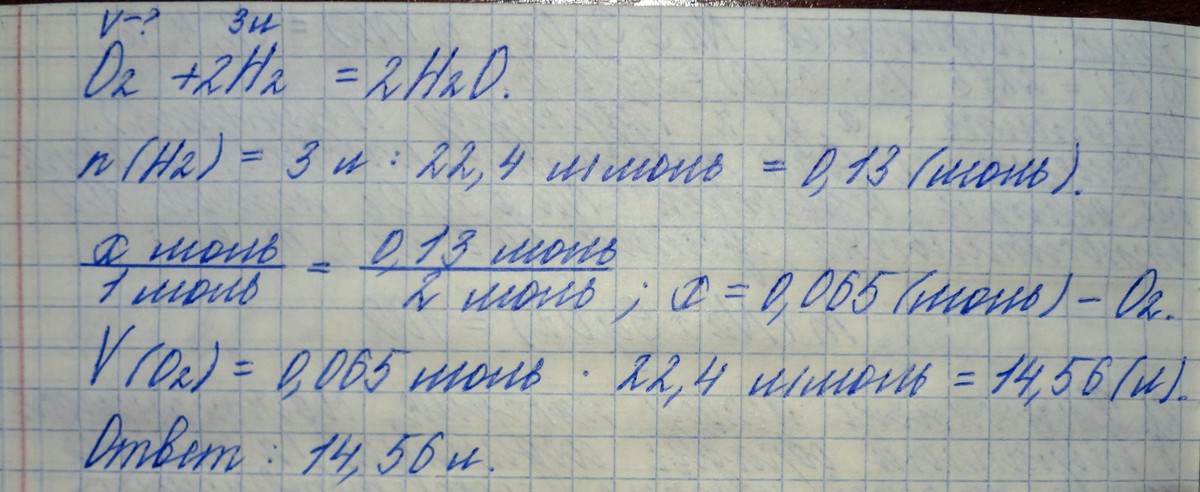 V-? 3л
O2 + 2H2 = 2H2O.
n(H2) = 3 л : 22,4 л/моль = 0,13 (моль).
x моль / 1 моль = 0,13 моль / 2 моль ; x = 0,065 (моль) - O2.
V(O2) = 0,065 моль · 22,4 л/моль = 14,56 (л).
Ответ : 14,56 л.